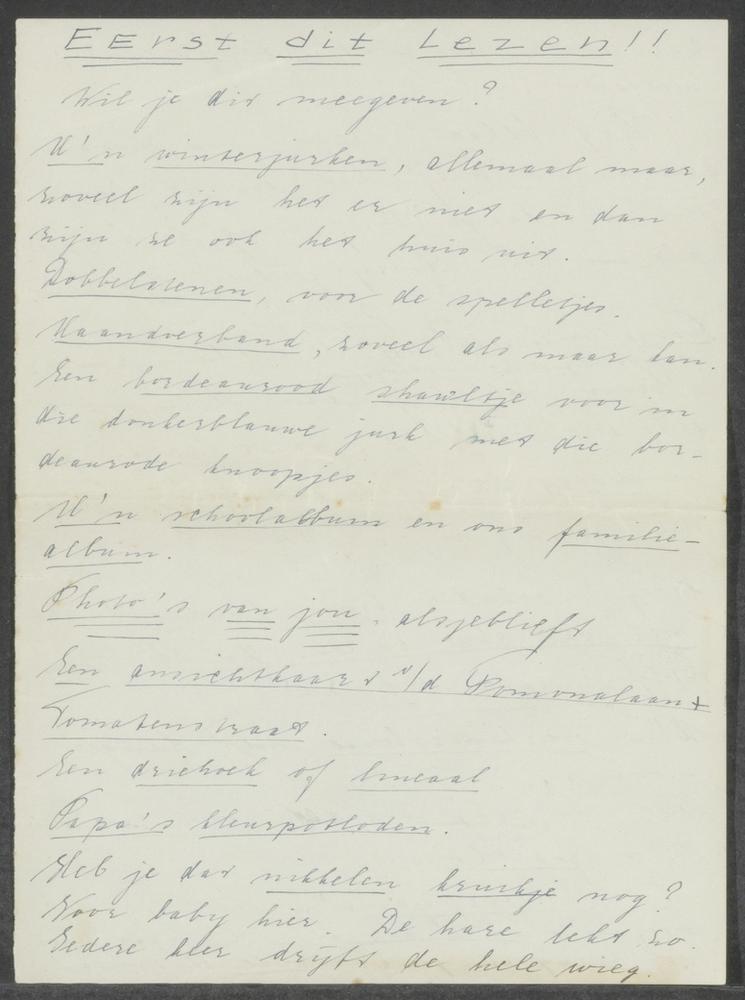 EErst dit Lezen!!
Wil je dit meegeven?
M'n winterjurken, allemaal maar,
zoveel zijn het er niet en dan
zijn ze ook het huis uit.
Dobbelstenen, voor de spelletjes.
Maandverband, zoveel als maar kan.
Een bordeauxrood shawltje voor in
die donkerblauwe jurk met die bor-
deaurode knoopjes.
M'n schoolalbum en ons familie-
album.
Photo's van jou. alsjeblieft
Een ansichtkaart v/d Pomonalaan +
Tomatenstraat.
Een driehoek of lineaal
Papa's kleurpotloden.
Heb je dat nikkelen kruikje nog?
Voor baby hier. De hare lekt zo.
Iedere keer drijft de hele wieg.